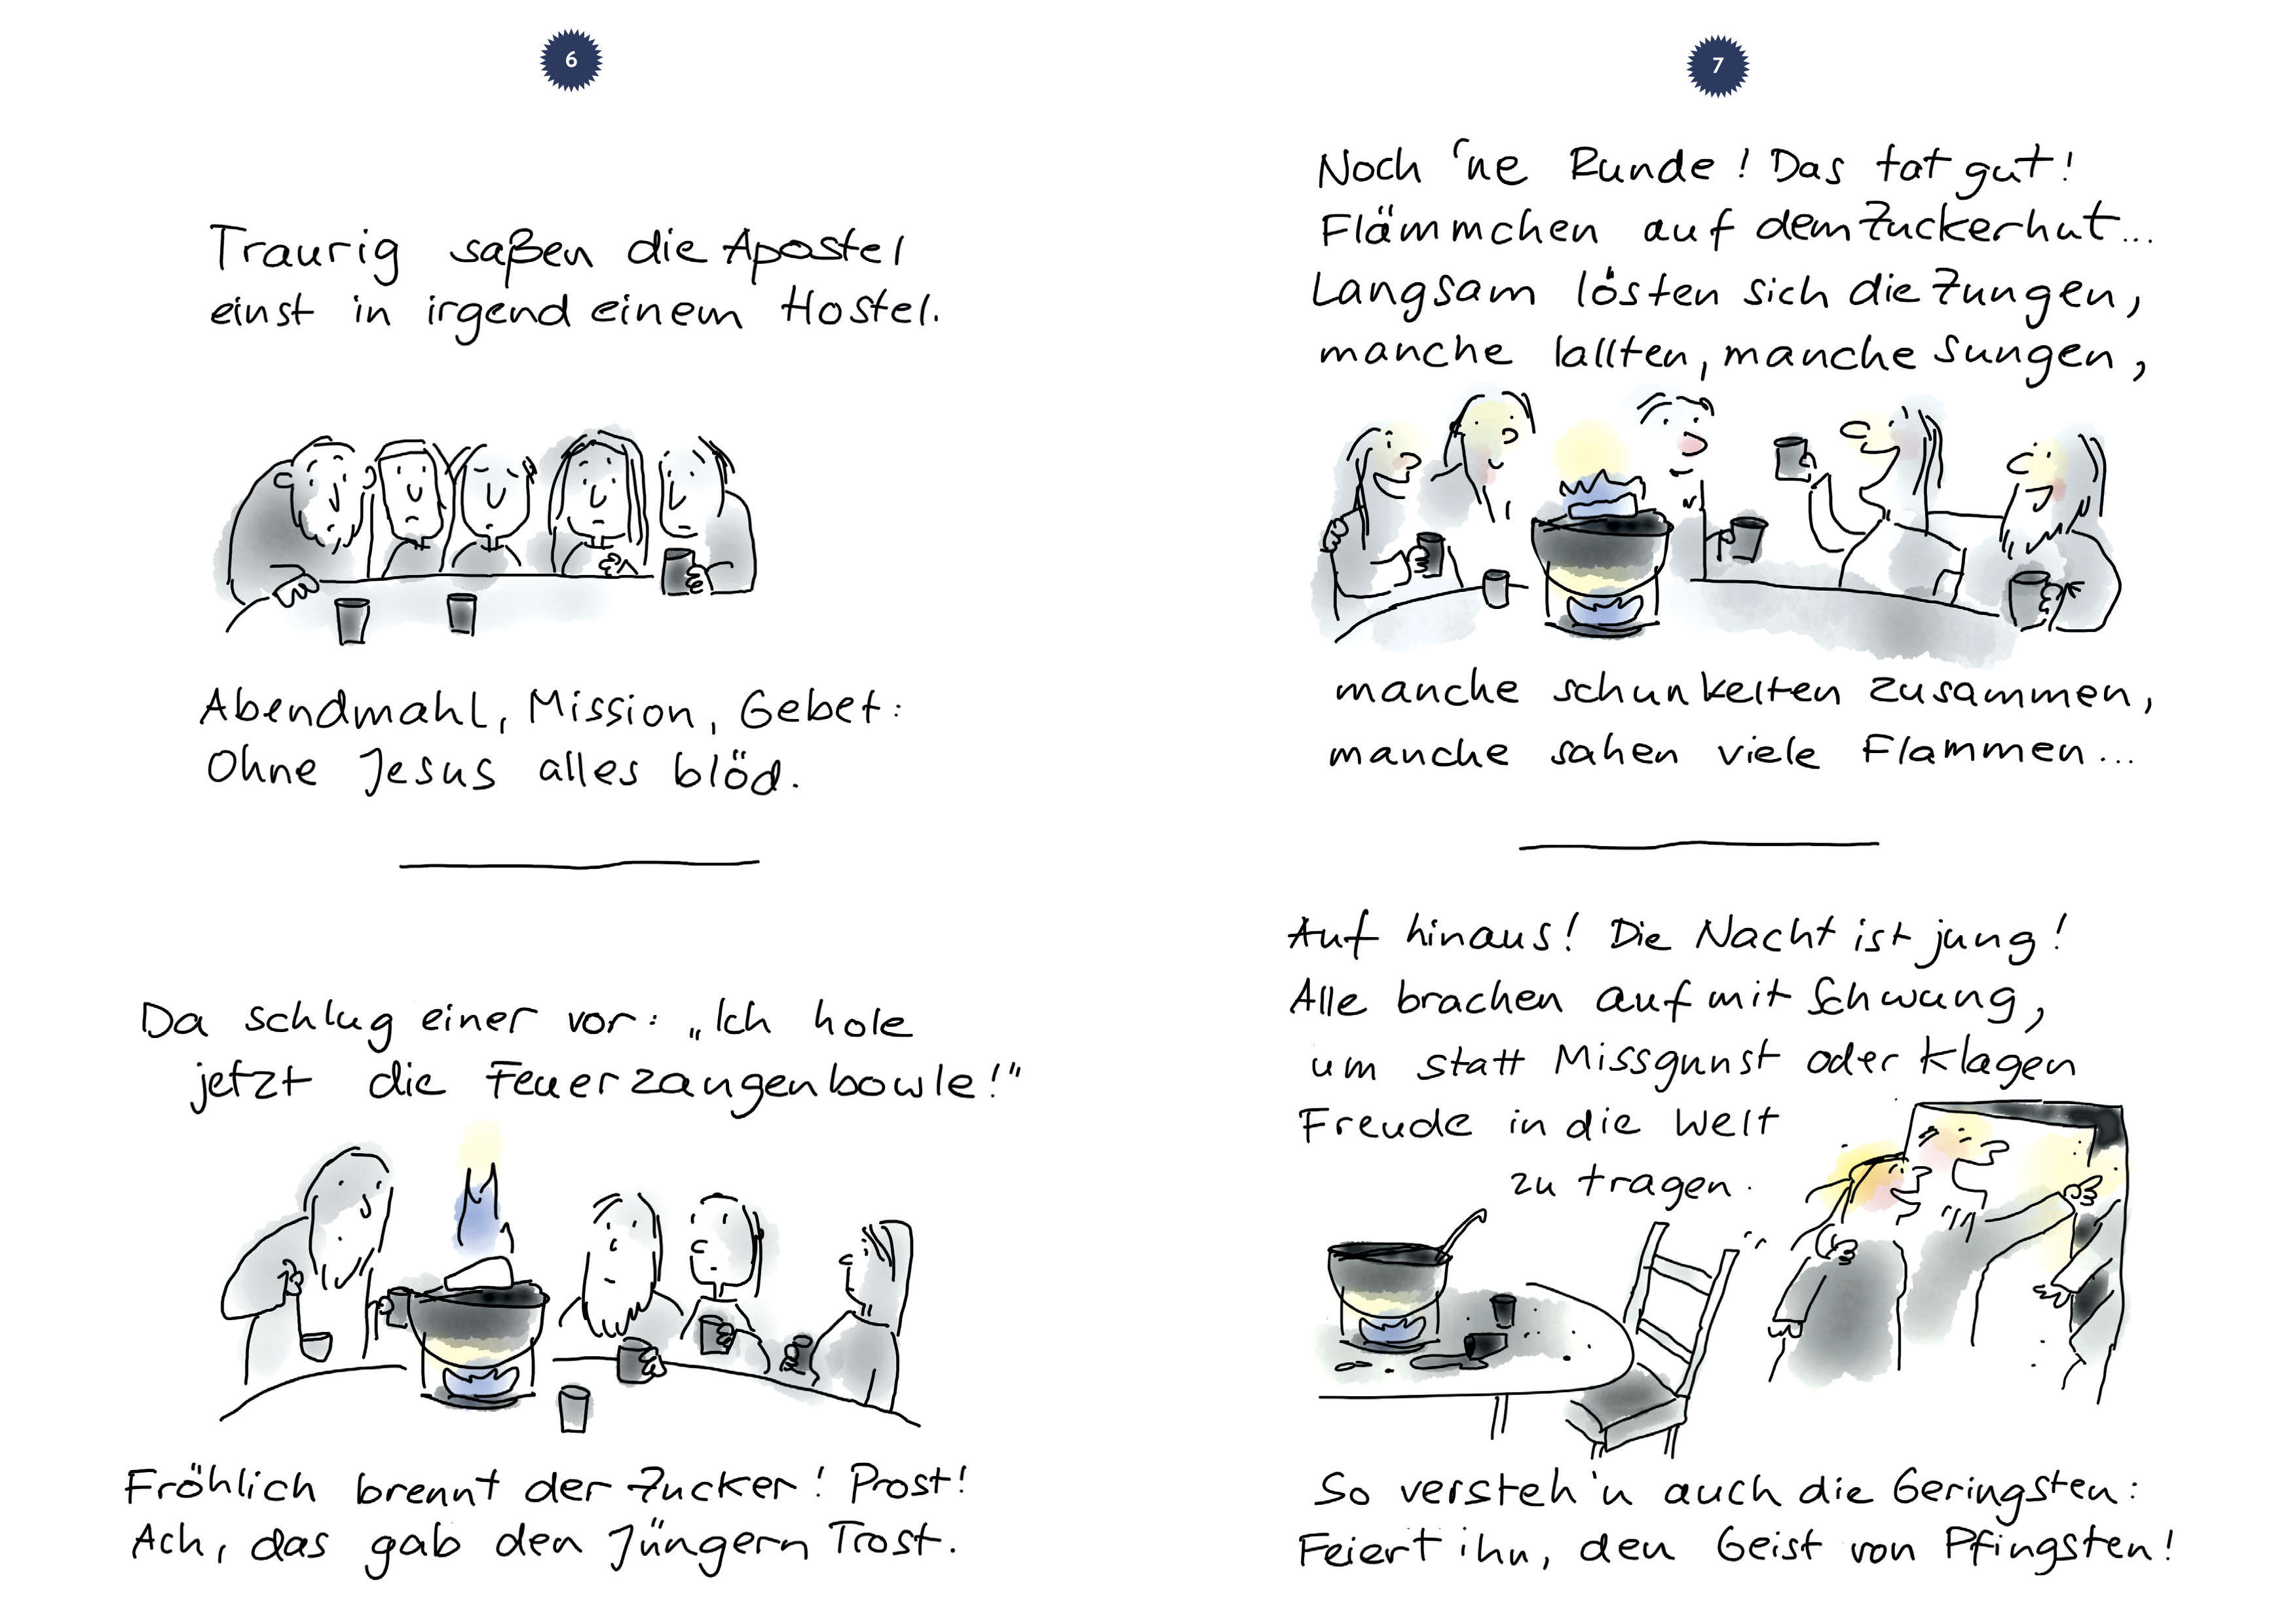 6
Traurig saßen die Apostel
einst in irgendeinem Hostel.
Abendmahl, Mission, Gebet:
Ohne Jesus alles blöd.
Da schlug einer vor: „Ich hole
jetzt die Feuerzangenbowle!"
Fröhlich brennt der Zucker! Prost!
Ach, das gab den Jüngern Trost.
7
Noch 'ne Runde! Das tat gut!
Flämmchen auf dem Zuckerhut...
Langsam lösten sich die Zungen,
manche lallten, manche sungen,
manche schunkelten zusammen,
manche sahen viele Flammen...
Auf hinaus! Die Nacht ist jung!
Alle brachen auf mit Schwung,
um statt Missgunst oder Klagen
Freude in die Welt
zu tragen.
So versteh'n auch die Geringsten:
Feiert ihn, den Geist von Pfingsten!